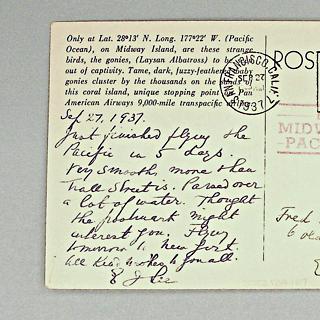 Only at Lat. 28°13' N. Long. 177°22' W. (Pacific
Ocean), on Midway Island, are these strange
birds, the gonies, (Laysan Albatross) to be
out of captivity. Tame, dark, fuzzy-feathered baby
gonies cluster by the thousands on the sands of
this coral island, unique stopping point on Pan
American Airways 9,000-mile transpacific
Sep 27, 1937.
Just finished flying the
Pacific in 5 days.
Very smooth, more than
Wall Street is. Passed over
a lot of water. Thought
the postmark might
interest you. Flying
tomorrow to New York.
All kind wishes to you all.
E J
SAN FRANCISCO, CALIF.
SEP 27
1937
POST
MIDW
-PAC
Fred
6